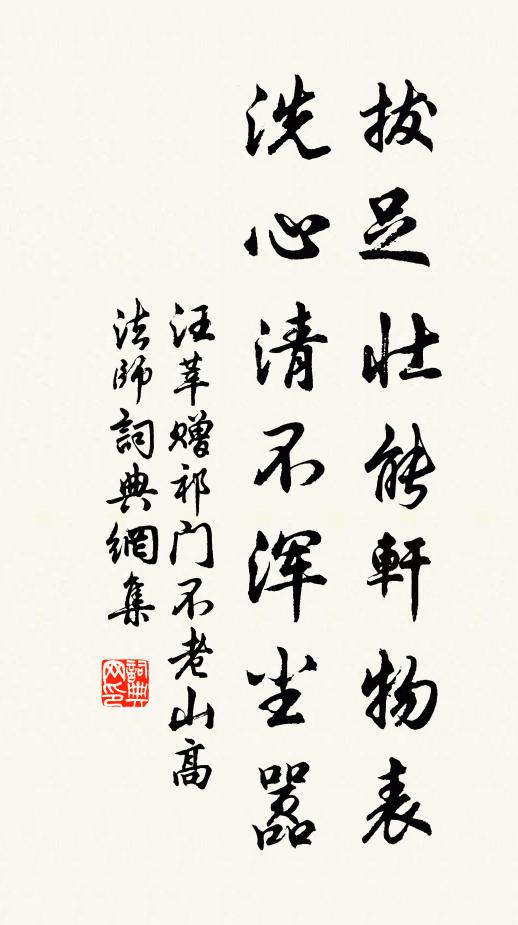 拔足壮能軒物表
洗心清不浑尘嚣
汪莘赠祁门不老山高
法師詞典網集
詞典网印